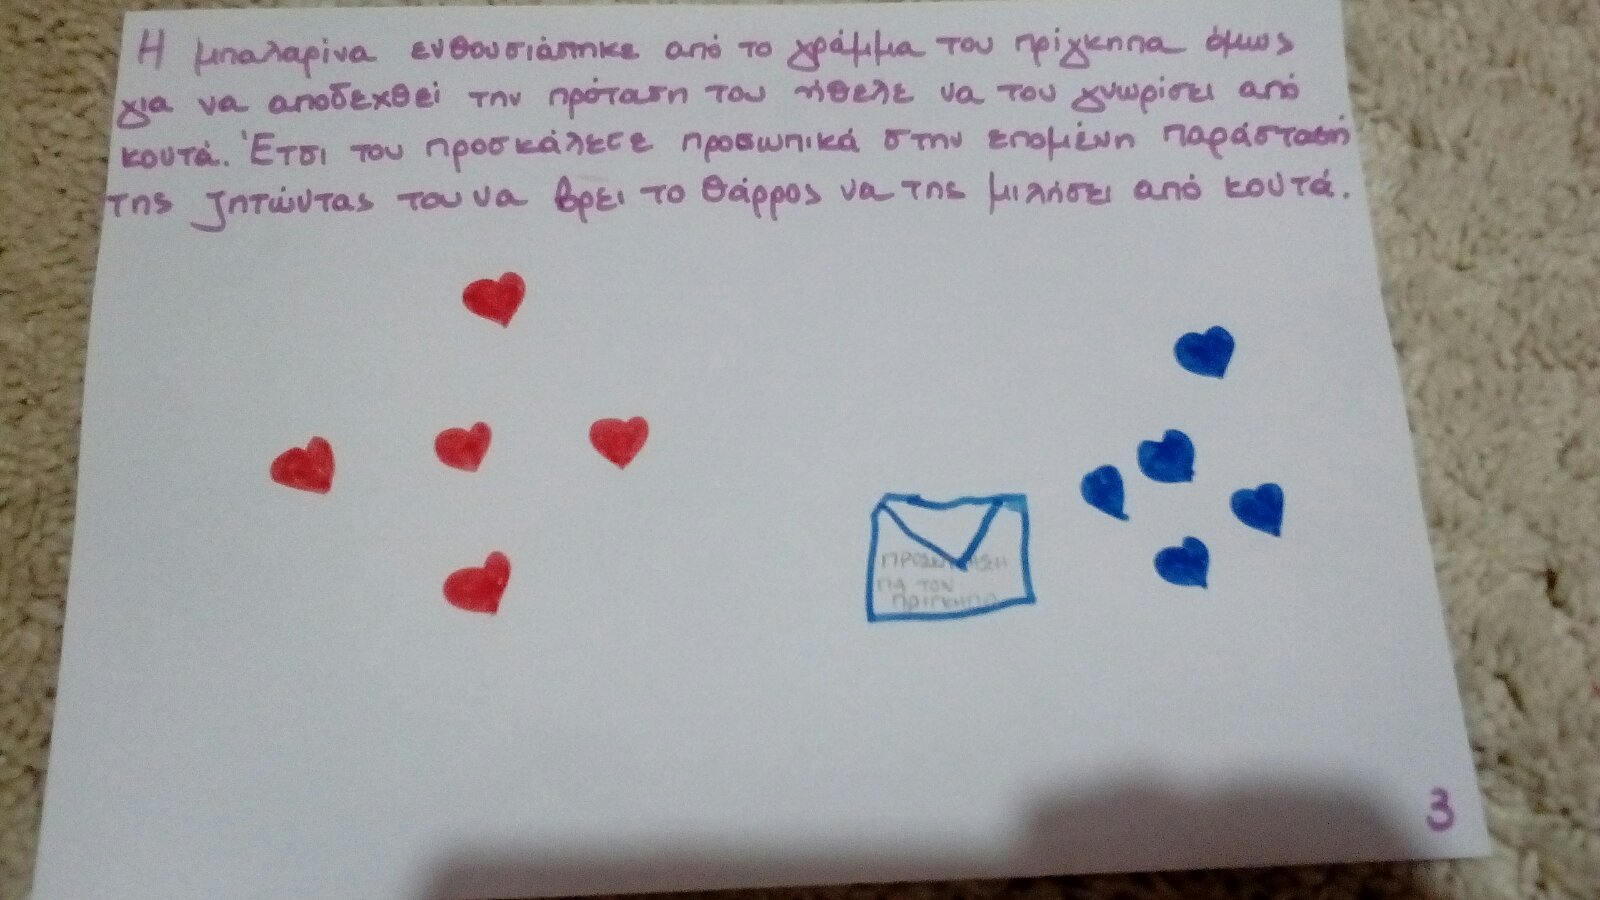 Η μπαλαρίνα ενθουσιάστηκε από το γράμμα του πρίγκηπα όμως
για να αποδεχθεί την πρόταση του ήθελε να τον γνωρίσει από
κοντά. Έτσι τον προσκάλεσε προσωπικά στην επομένη παράσταση
της ζητώντας του να βρει το θάρρος να της μιλήσει από κοντά.
ΠΡΟΣΚΛΗΣΗ
ΓΙΑ ΤΟΝ
ΠΡΙΓΚΗΠΑ
3